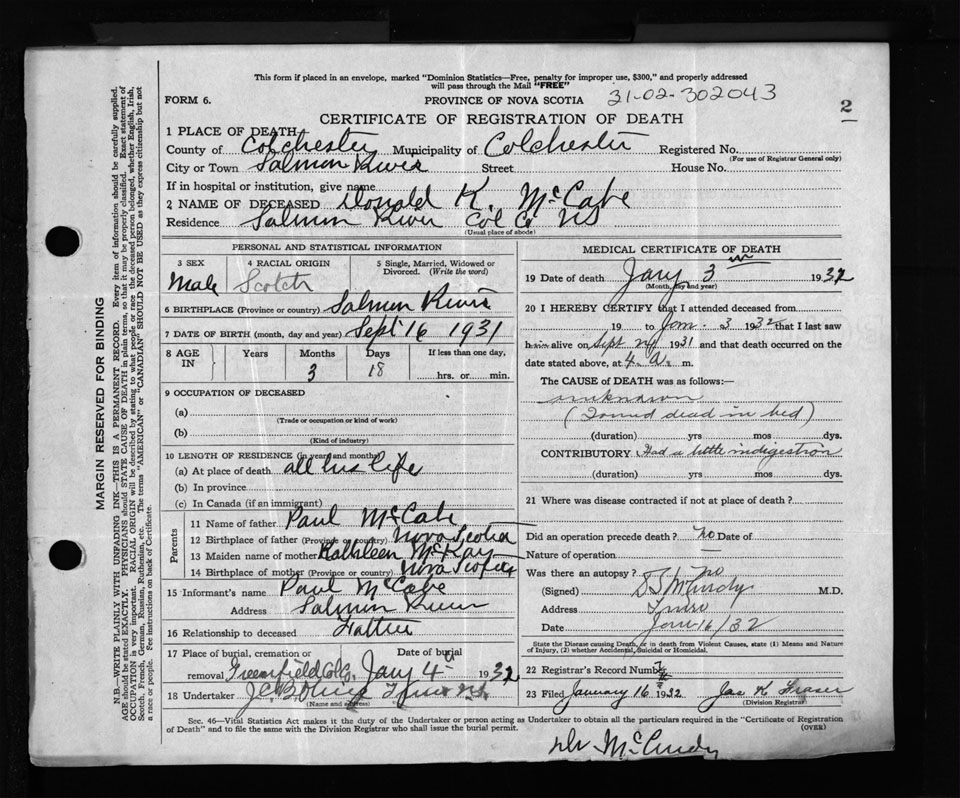 This form if placed in an envelope, marked "Dominion Statistics—Free, penalty for improper use, $300," and properly addressed
will pass through the Mail "FREE"
FORM 6. PROVINCE OF NOVA SCOTIA 31-02-302043
2
CERTIFICATE OF REGISTRATION OF DEATH
1 PLACE OF DEATH
County of Colchester Municipality of Colchester Registered No.
(For use of Registrar General only)
City or Town Salmon River Street House No.
If in hospital or institution, give name
2 NAME OF DECEASED Donald K. McCabe
Residence Salmon River Col Co NS
(Usual place of abode)
PERSONAL AND STATISTICAL INFORMATION
3 SEX 4 RACIAL ORIGIN 5 Single, Married, Widowed or
Divorced. (Write the word)
Male Scotch
6 BIRTHPLACE (Province or country) Salmon River
7 DATE OF BIRTH (month, day and year) Sept 16 1931
8 AGE IN Years Months Days If less than one day,
3 18 hrs. or min.
9 OCCUPATION OF DECEASED
(a)
(Trade or occupation or kind of work)
(b)
(Kind of industry)
10 LENGTH OF RESIDENCE (in years and months)
(a) At place of death all his life
(b) In province
(c) In Canada (if an immigrant)
Parents
11 Name of father Paul McCabe
12 Birthplace of father (Province or country) Nova Scotia
13 Maiden name of mother Kathleen McKay
14 Birthplace of mother (Province or country) Nova Scotia
15 Informant's name Paul McCabe
Address Salmon River
16 Relationship to deceased Father
17 Place of burial, cremation or Date of burial
removal Greenfield Col Co. Jany 4 1932
18 Undertaker Truro NS
(Name and address)
MEDICAL CERTIFICATE OF DEATH
19 Date of death Jany 3 1932
(Month, day and year)
20 I HEREBY CERTIFY that I attended deceased from
19 to Jan. 3 1932 that I last saw
him alive on Sept 24 1931 and that death occurred on the
date stated above, at 4 a. m.
The CAUSE OF DEATH was as follows:—
unknown
(Found dead in bed)
(duration) yrs mos dys.
CONTRIBUTORY Had a little indigestion
(duration) yrs mos dys.
21 Where was disease contracted if not at place of death?
Did an operation precede death? no Date of
Nature of operation
Was there an autopsy? no
(Signed) McCurdy M.D.
Address Truro
Date Jan 16/32
State the Disease causing Death, or in death from Violent Causes, state (1) Means and Nature
of Injury, (2) whether Accidental, Suicidal or Homicidal.
22 Registrar's Record Number
23 Filed January 16 1932 Jas K Fraser
(Division Registrar)
Sec. 46—Vital Statistics Act makes it the duty of the Undertaker or person acting as Undertaker to obtain all the particulars required in the "Certificate of Registration
of Death" and to file the same with the Division Registrar who shall issue the burial permit. (OVER)
Dr McCurdy
MARGIN RESERVED FOR BINDING
N.B.—WRITE PLAINLY WITH UNFADING INK—THIS IS A PERMANENT RECORD. Every item of information should be carefully supplied.
AGE should be stated EXACTLY. PHYSICIANS should STATE CAUSE OF DEATH in plain terms, so that it may be properly classified. Exact statement of
OCCUPATION is very important. RACIAL ORIGIN will be described by stating to what people or race the deceased person belonged, whether English, Irish,
Scotch, French, German, Russian, Ruthenian, etc. The terms "AMERICAN" or "CANADIAN" SHOULD NOT BE USED as they express citizenship but not
a race or people. See instructions on back of Certificate.